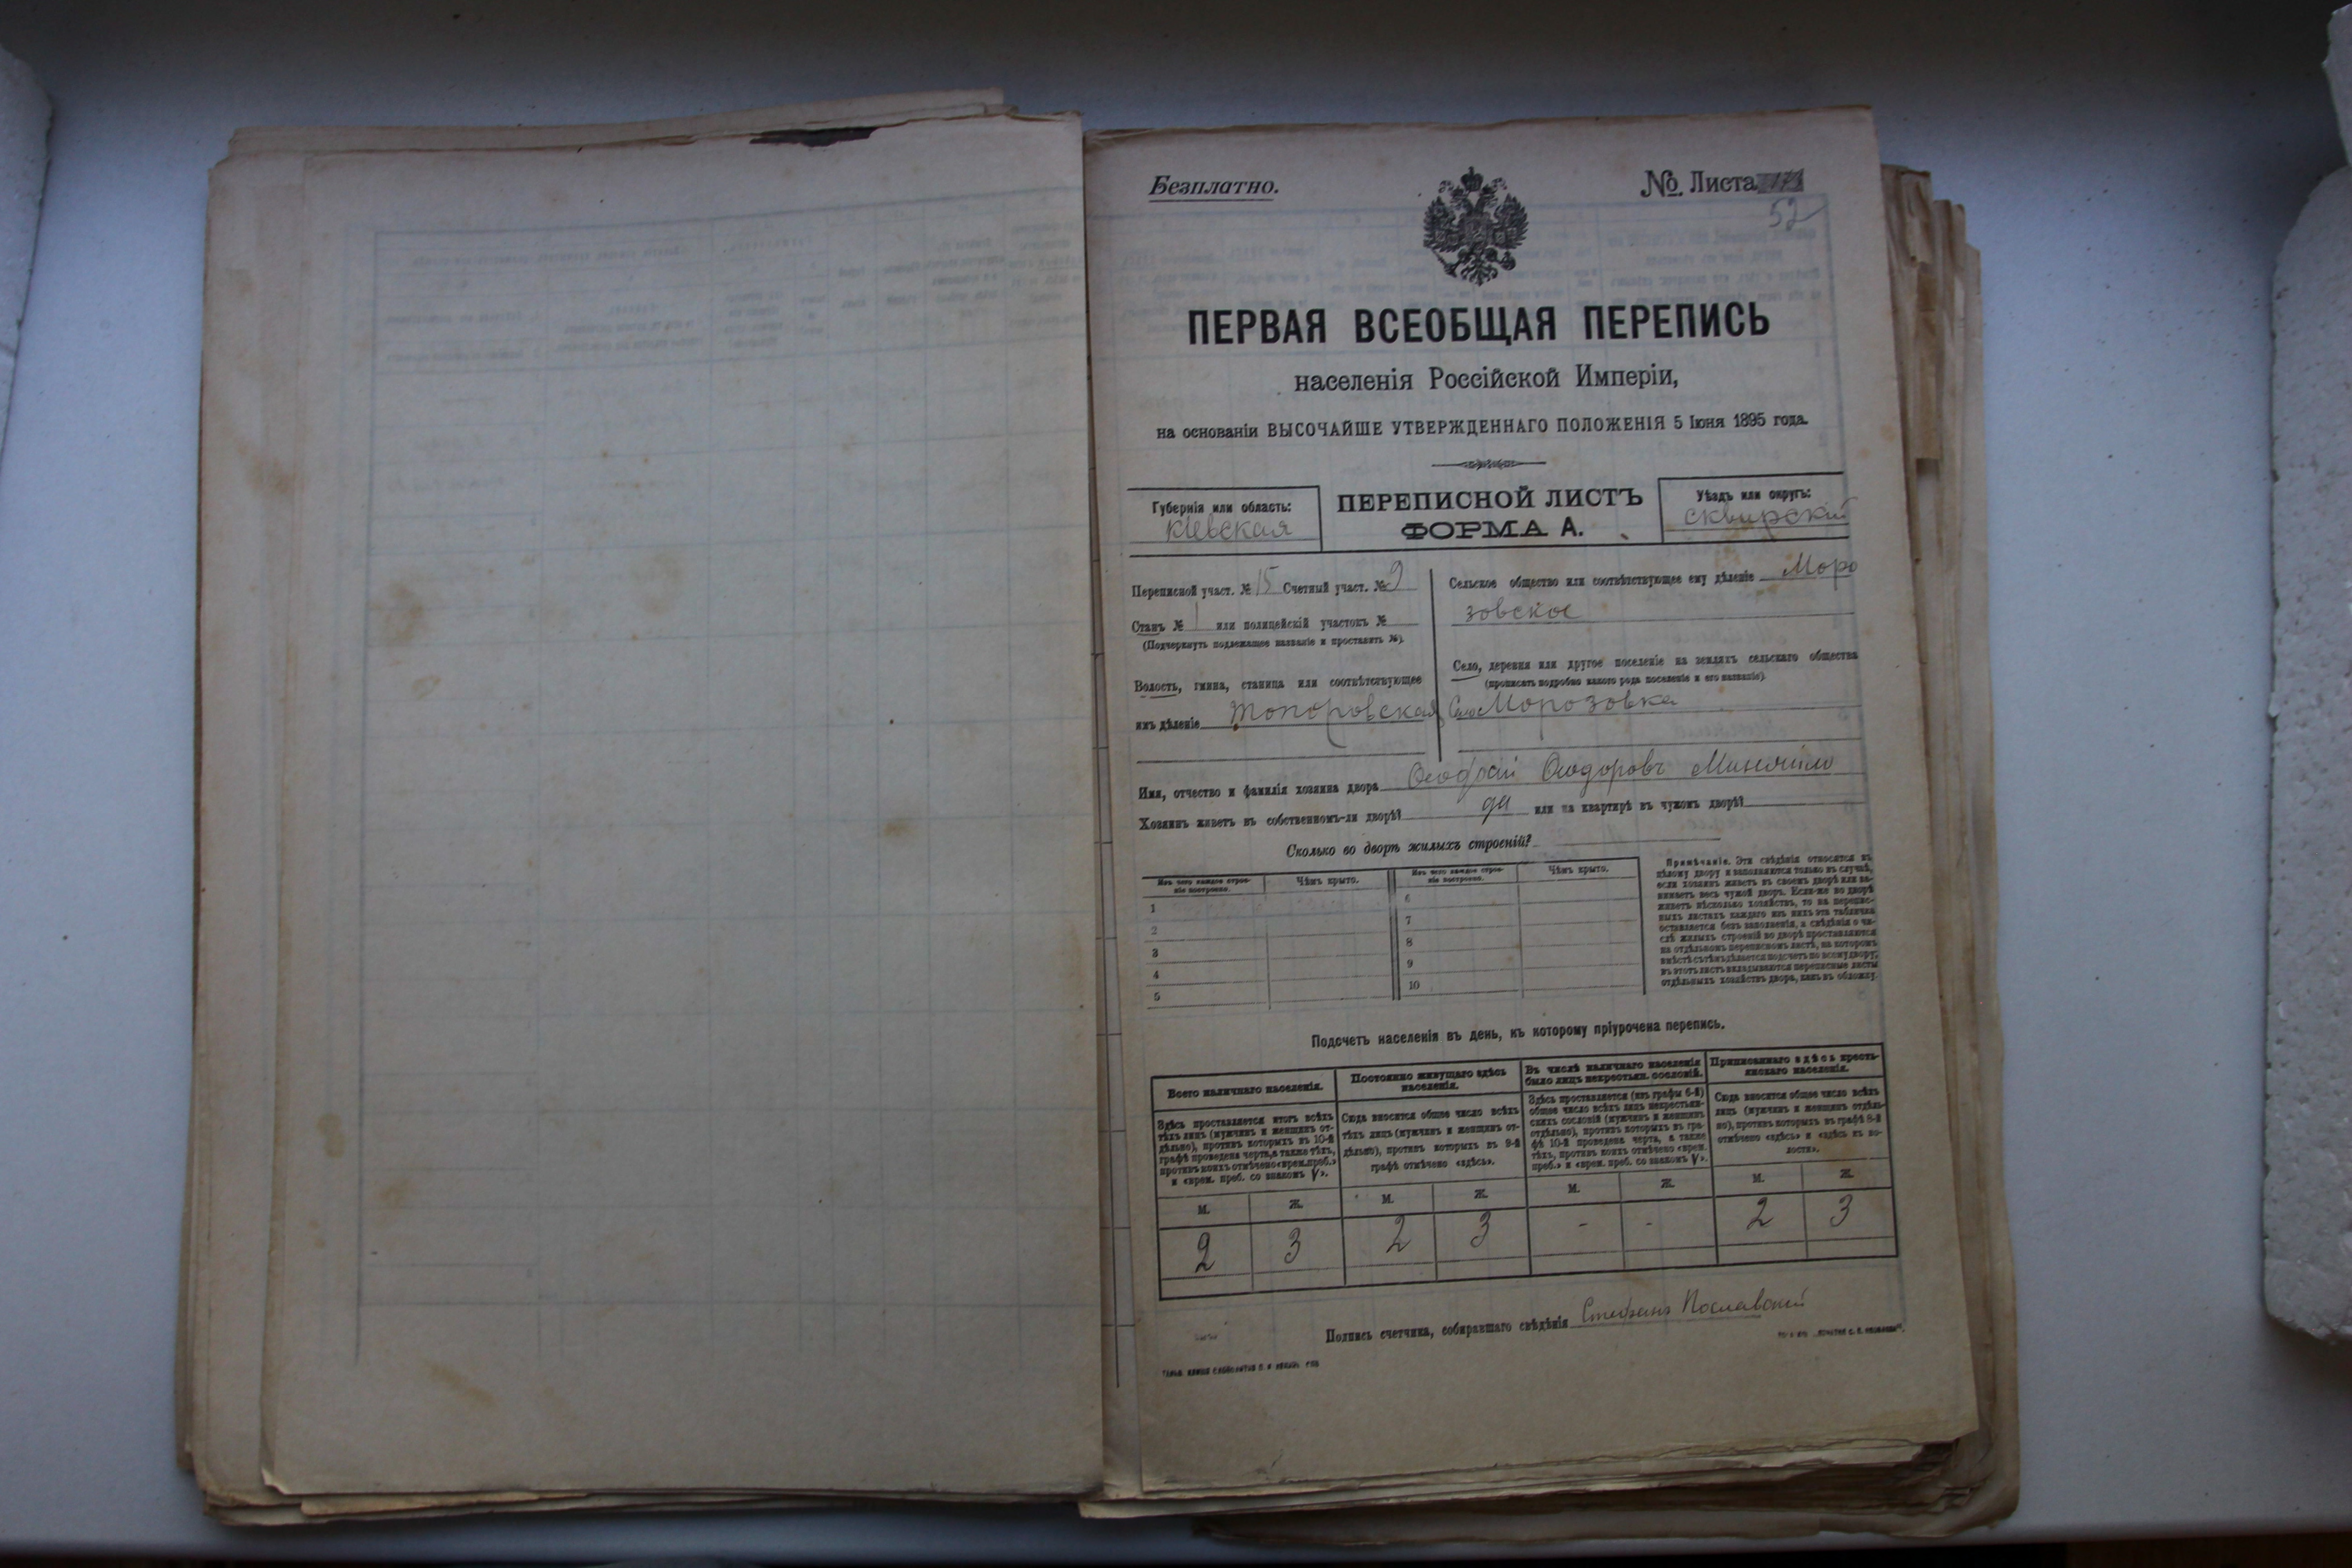 Безплатно.
№ Листа
52
ПЕРВАЯ ВСЕОБЩАЯ ПЕРЕПИСЬ
населенія Россійской Имперіи,
на основаніи ВЫСОЧАЙШЕ УТВЕРЖДЕННАГО ПОЛОЖЕНІЯ 5 Іюня 1895 года.
Губернія или область:
Кіевская
ПЕРЕПИСНОЙ ЛИСТЪ
ФОРМА А.
Уѣздъ или округъ:
сквирскій
Переписной участ. № 15 Счетный участ. № 9
Станъ № 1 или полицейскій участокъ №
(Подчеркнуть подлежащее названіе и проставить №).
Волость, гмина, станица или соотвѣтствующее
имъ дѣленіе Топоровская
Сельское общество или соотвѣтствующее ему дѣленіе Моро
зовское
Село, деревня или другое поселеніе на земляхъ сельскаго общества
(прописать подробно какого рода поселеніе и его названіе).
Село Морозовка
Имя, отчество и фамилія хозяина двора Феодоровъ
Хозяинъ живетъ въ собственномъ-ли дворѣ? да или на квартирѣ въ чужомъ дворѣ?
Сколько во дворѣ жилыхъ строеній?
Изъ чего каждое строе-
ніе построено.
Чѣмъ крыто.
Изъ чего каждое строе-
ніе построено.
Чѣмъ крыто.
1
6
2
7
3
8
4
9
5
10
Примѣчаніе. Эти свѣдѣнія относятся къ
цѣлому двору и заполняются только въ случаѣ,
если хозяинъ живетъ въ своемъ дворѣ или за-
нимаетъ весь чужой дворъ. Если-же во дворѣ
живетъ нѣсколько хозяйствъ, то на перепис-
ныхъ листахъ каждаго изъ нихъ эта табличка
оставляется безъ заполненія, а свѣдѣнія о чи-
слѣ жилыхъ строеній во дворѣ проставляются
на отдѣльномъ переписномъ листѣ, на которомъ
вмѣстѣ съ тѣмъ дѣлается подсчетъ по всему двору;
въ этотъ листъ вкладываются переписные листы
отдѣльныхъ хозяйствъ двора, какъ въ обложку.
Подсчетъ населенія въ день, къ которому пріурочена перепись.
Всего наличнаго населенія.
Здѣсь проставляется итогъ всѣхъ
тѣхъ лицъ (мужчинъ и женщинъ от-
дѣльно), противъ которыхъ въ 10-й
графѣ проведена черта, а также тѣхъ,
противъ коихъ отмѣчено «врем. преб.»
и «врем. преб. со знакомъ V».
Постоянно живущаго здѣсь
населенія.
Сюда вносится общее число всѣхъ
тѣхъ лицъ (мужчинъ и женщинъ от-
дѣльно), противъ которыхъ въ 9-й
графѣ отмѣчено «здѣсь».
Въ числѣ наличнаго населенія
было лицъ некрестьян. сословій.
Здѣсь проставляется (изъ графы 6-й)
общее число всѣхъ лицъ некрестьян-
скихъ сословій (мужчинъ и женщинъ
отдѣльно), противъ которыхъ въ гра-
фѣ 10-й проведена черта, а также
тѣхъ, противъ коихъ отмѣчено «врем.
преб.» и «врем. преб. со знакомъ V».
Приписаннаго здѣсь кресть-
янскаго населенія.
Сюда вносится общее число всѣхъ
лицъ (мужчинъ и женщинъ отдѣль-
но), противъ которыхъ въ графѣ 8-й
отмѣчено «здѣсь» и «здѣсь въ во-
лости».
М. Ж. М. Ж. М. Ж. М. Ж.
2 3 2 3 - - 2 3
Подпись счетчика, собиравшаго свѣдѣнія Стефанъ Пославский